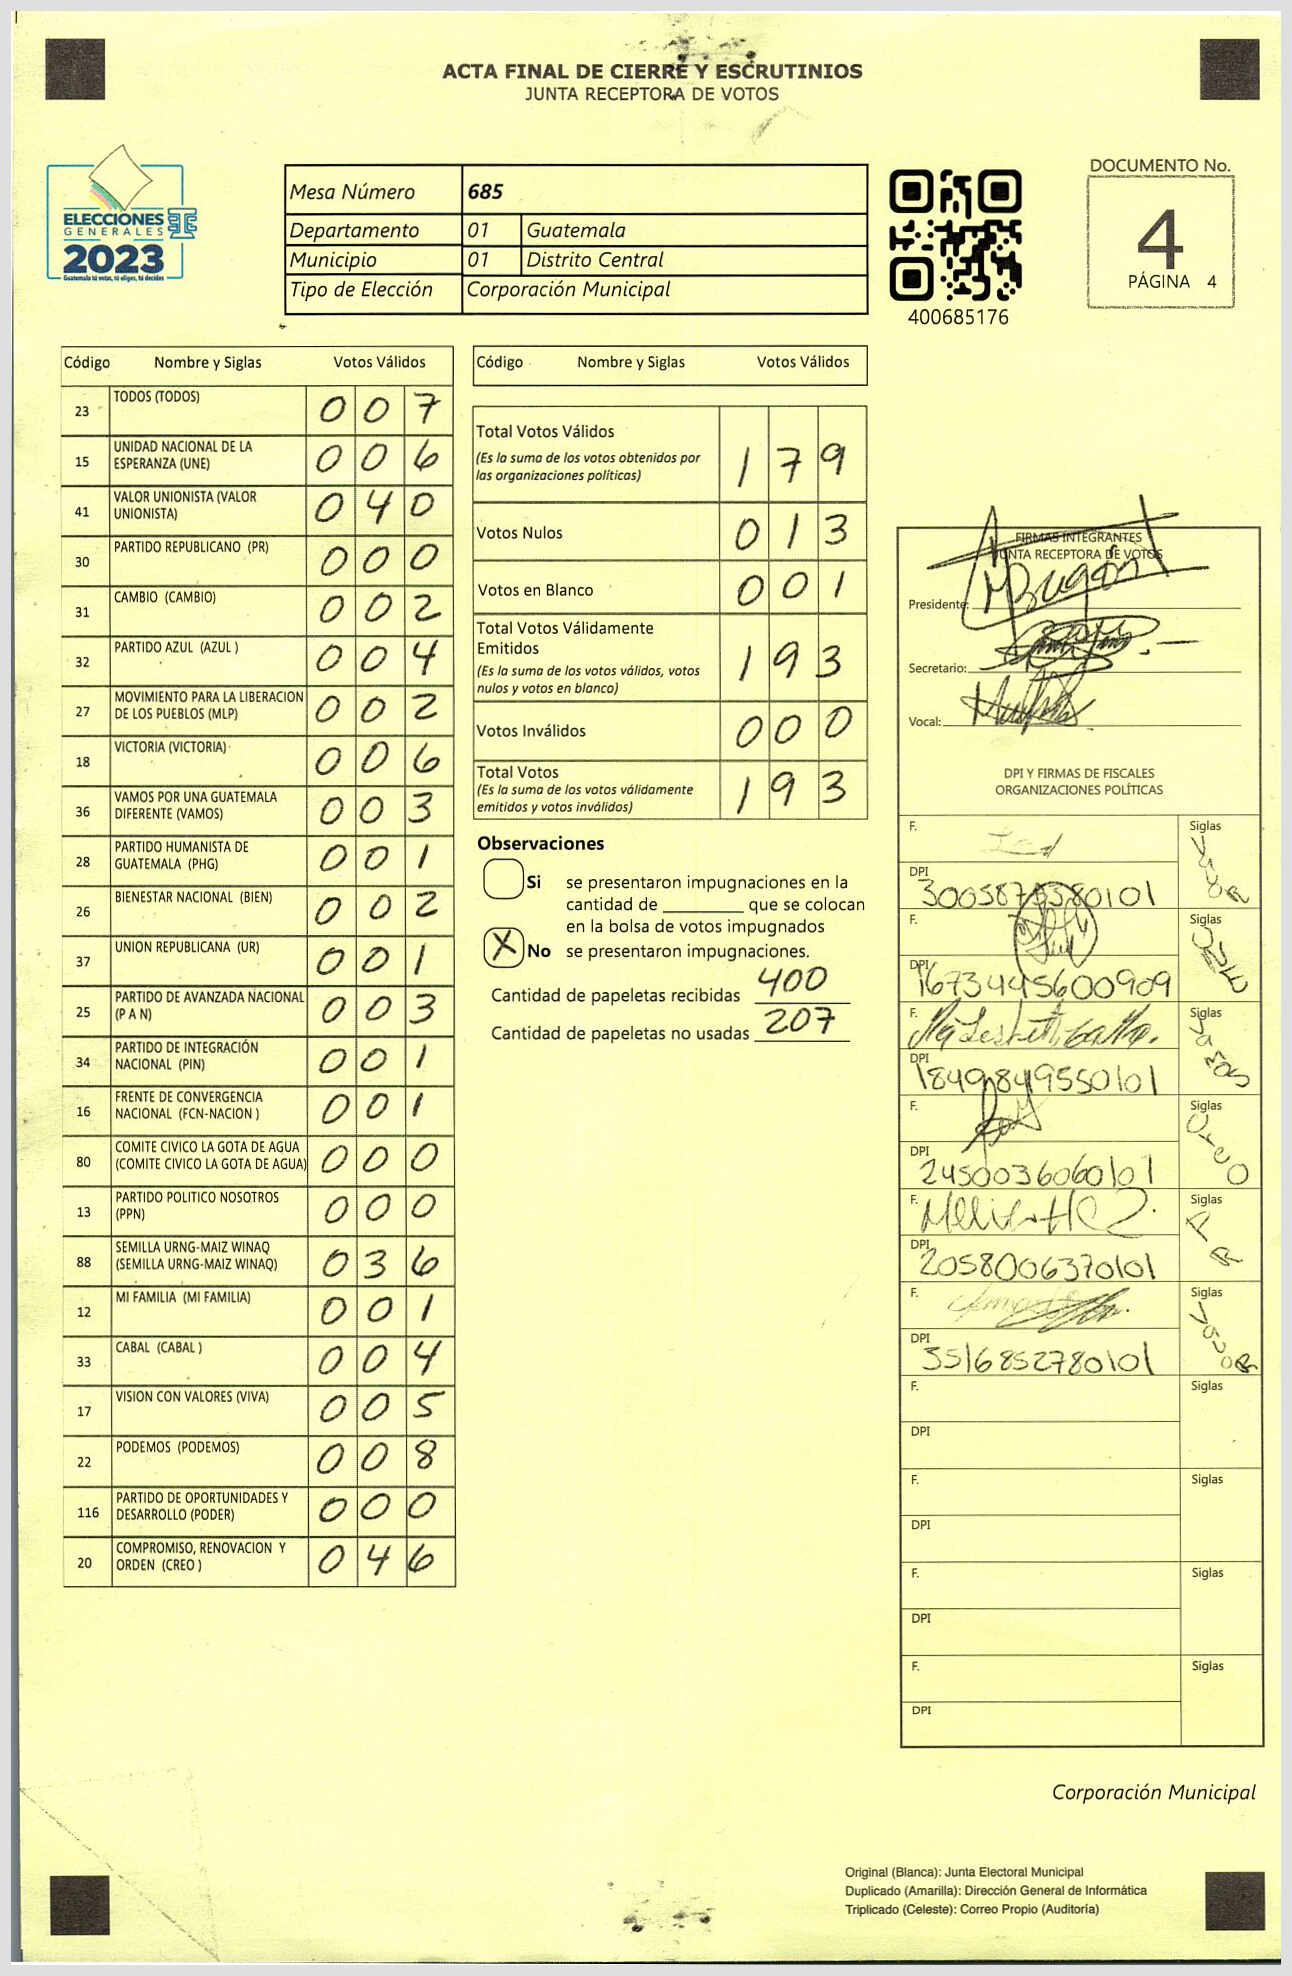 ACTA FINAL DE CIERRE Y ESCRUTINIOS
JUNTA RECEPTORA DE VOTOS
ELECCIONES
GENERALES
2023
Guatemala tú votas, tú eliges, tú decides
Mesa Número 685
Departamento 01 Guatemala
Municipio 01 Distrito Central
Tipo de Elección Corporación Municipal
400685176
DOCUMENTO No.
4
PÁGINA 4
Código Nombre y Siglas Votos Válidos
23 TODOS (TODOS) 0 0 7
15 UNIDAD NACIONAL DE LA
ESPERANZA (UNE) 0 0 6
41 VALOR UNIONISTA (VALOR
UNIONISTA) 0 4 0
30 PARTIDO REPUBLICANO (PR) 0 0 0
31 CAMBIO (CAMBIO) 0 0 2
32 PARTIDO AZUL (AZUL ) 0 0 4
27 MOVIMIENTO PARA LA LIBERACION
DE LOS PUEBLOS (MLP) 0 0 2
18 VICTORIA (VICTORIA) 0 0 6
36 VAMOS POR UNA GUATEMALA
DIFERENTE (VAMOS) 0 0 3
28 PARTIDO HUMANISTA DE
GUATEMALA (PHG) 0 0 1
26 BIENESTAR NACIONAL (BIEN) 0 0 2
37 UNION REPUBLICANA (UR) 0 0 1
25 PARTIDO DE AVANZADA NACIONAL
(P A N) 0 0 3
34 PARTIDO DE INTEGRACIÓN
NACIONAL (PIN) 0 0 1
16 FRENTE DE CONVERGENCIA
NACIONAL (FCN-NACION ) 0 0 1
80 COMITE CIVICO LA GOTA DE AGUA
(COMITE CIVICO LA GOTA DE AGUA) 0 0 0
13 PARTIDO POLITICO NOSOTROS
(PPN) 0 0 0
88 SEMILLA URNG-MAIZ WINAQ
(SEMILLA URNG-MAIZ WINAQ) 0 3 6
12 MI FAMILIA (MI FAMILIA) 0 0 1
33 CABAL (CABAL ) 0 0 4
17 VISION CON VALORES (VIVA) 0 0 5
22 PODEMOS (PODEMOS) 0 0 8
116 PARTIDO DE OPORTUNIDADES Y
DESARROLLO (PODER) 0 0 0
20 COMPROMISO, RENOVACION Y
ORDEN (CREO ) 0 4 6
Código Nombre y Siglas Votos Válidos
Total Votos Válidos
(Es la suma de los votos obtenidos por
las organizaciones políticas) 1 7 9
Votos Nulos 0 1 3
Votos en Blanco 0 0 1
Total Votos Válidamente
Emitidos
(Es la suma de los votos válidos, votos
nulos y votos en blanco) 1 9 3
Votos Inválidos 0 0 0
Total Votos
(Es la suma de los votos válidamente
emitidos y votos inválidos) 1 9 3
Observaciones
Si se presentaron impugnaciones en la
cantidad de ________ que se colocan
en la bolsa de votos impugnados
X No se presentaron impugnaciones.
Cantidad de papeletas recibidas 400
Cantidad de papeletas no usadas 207
FIRMAS INTEGRANTES
JUNTA RECEPTORA DE VOTOS
Presidente:
Secretario:
Vocal:
DPI Y FIRMAS DE FISCALES
ORGANIZACIONES POLÍTICAS
F. Siglas
DPI
F. Siglas UNE
DPI 1673445600909
F. Siglas Vamos
DPI 1849849550101
F. Siglas Creo
DPI 2450036060101
F. Siglas
DPI 2058006370101
F. Siglas Valor
DPI 3516852780101
F. Siglas
DPI
F. Siglas
DPI
F. Siglas
DPI
F. Siglas
DPI
Corporación Municipal
Original (Blanca): Junta Electoral Municipal
Duplicado (Amarilla): Dirección General de Informática
Triplicado (Celeste): Correo Propio (Auditoría)